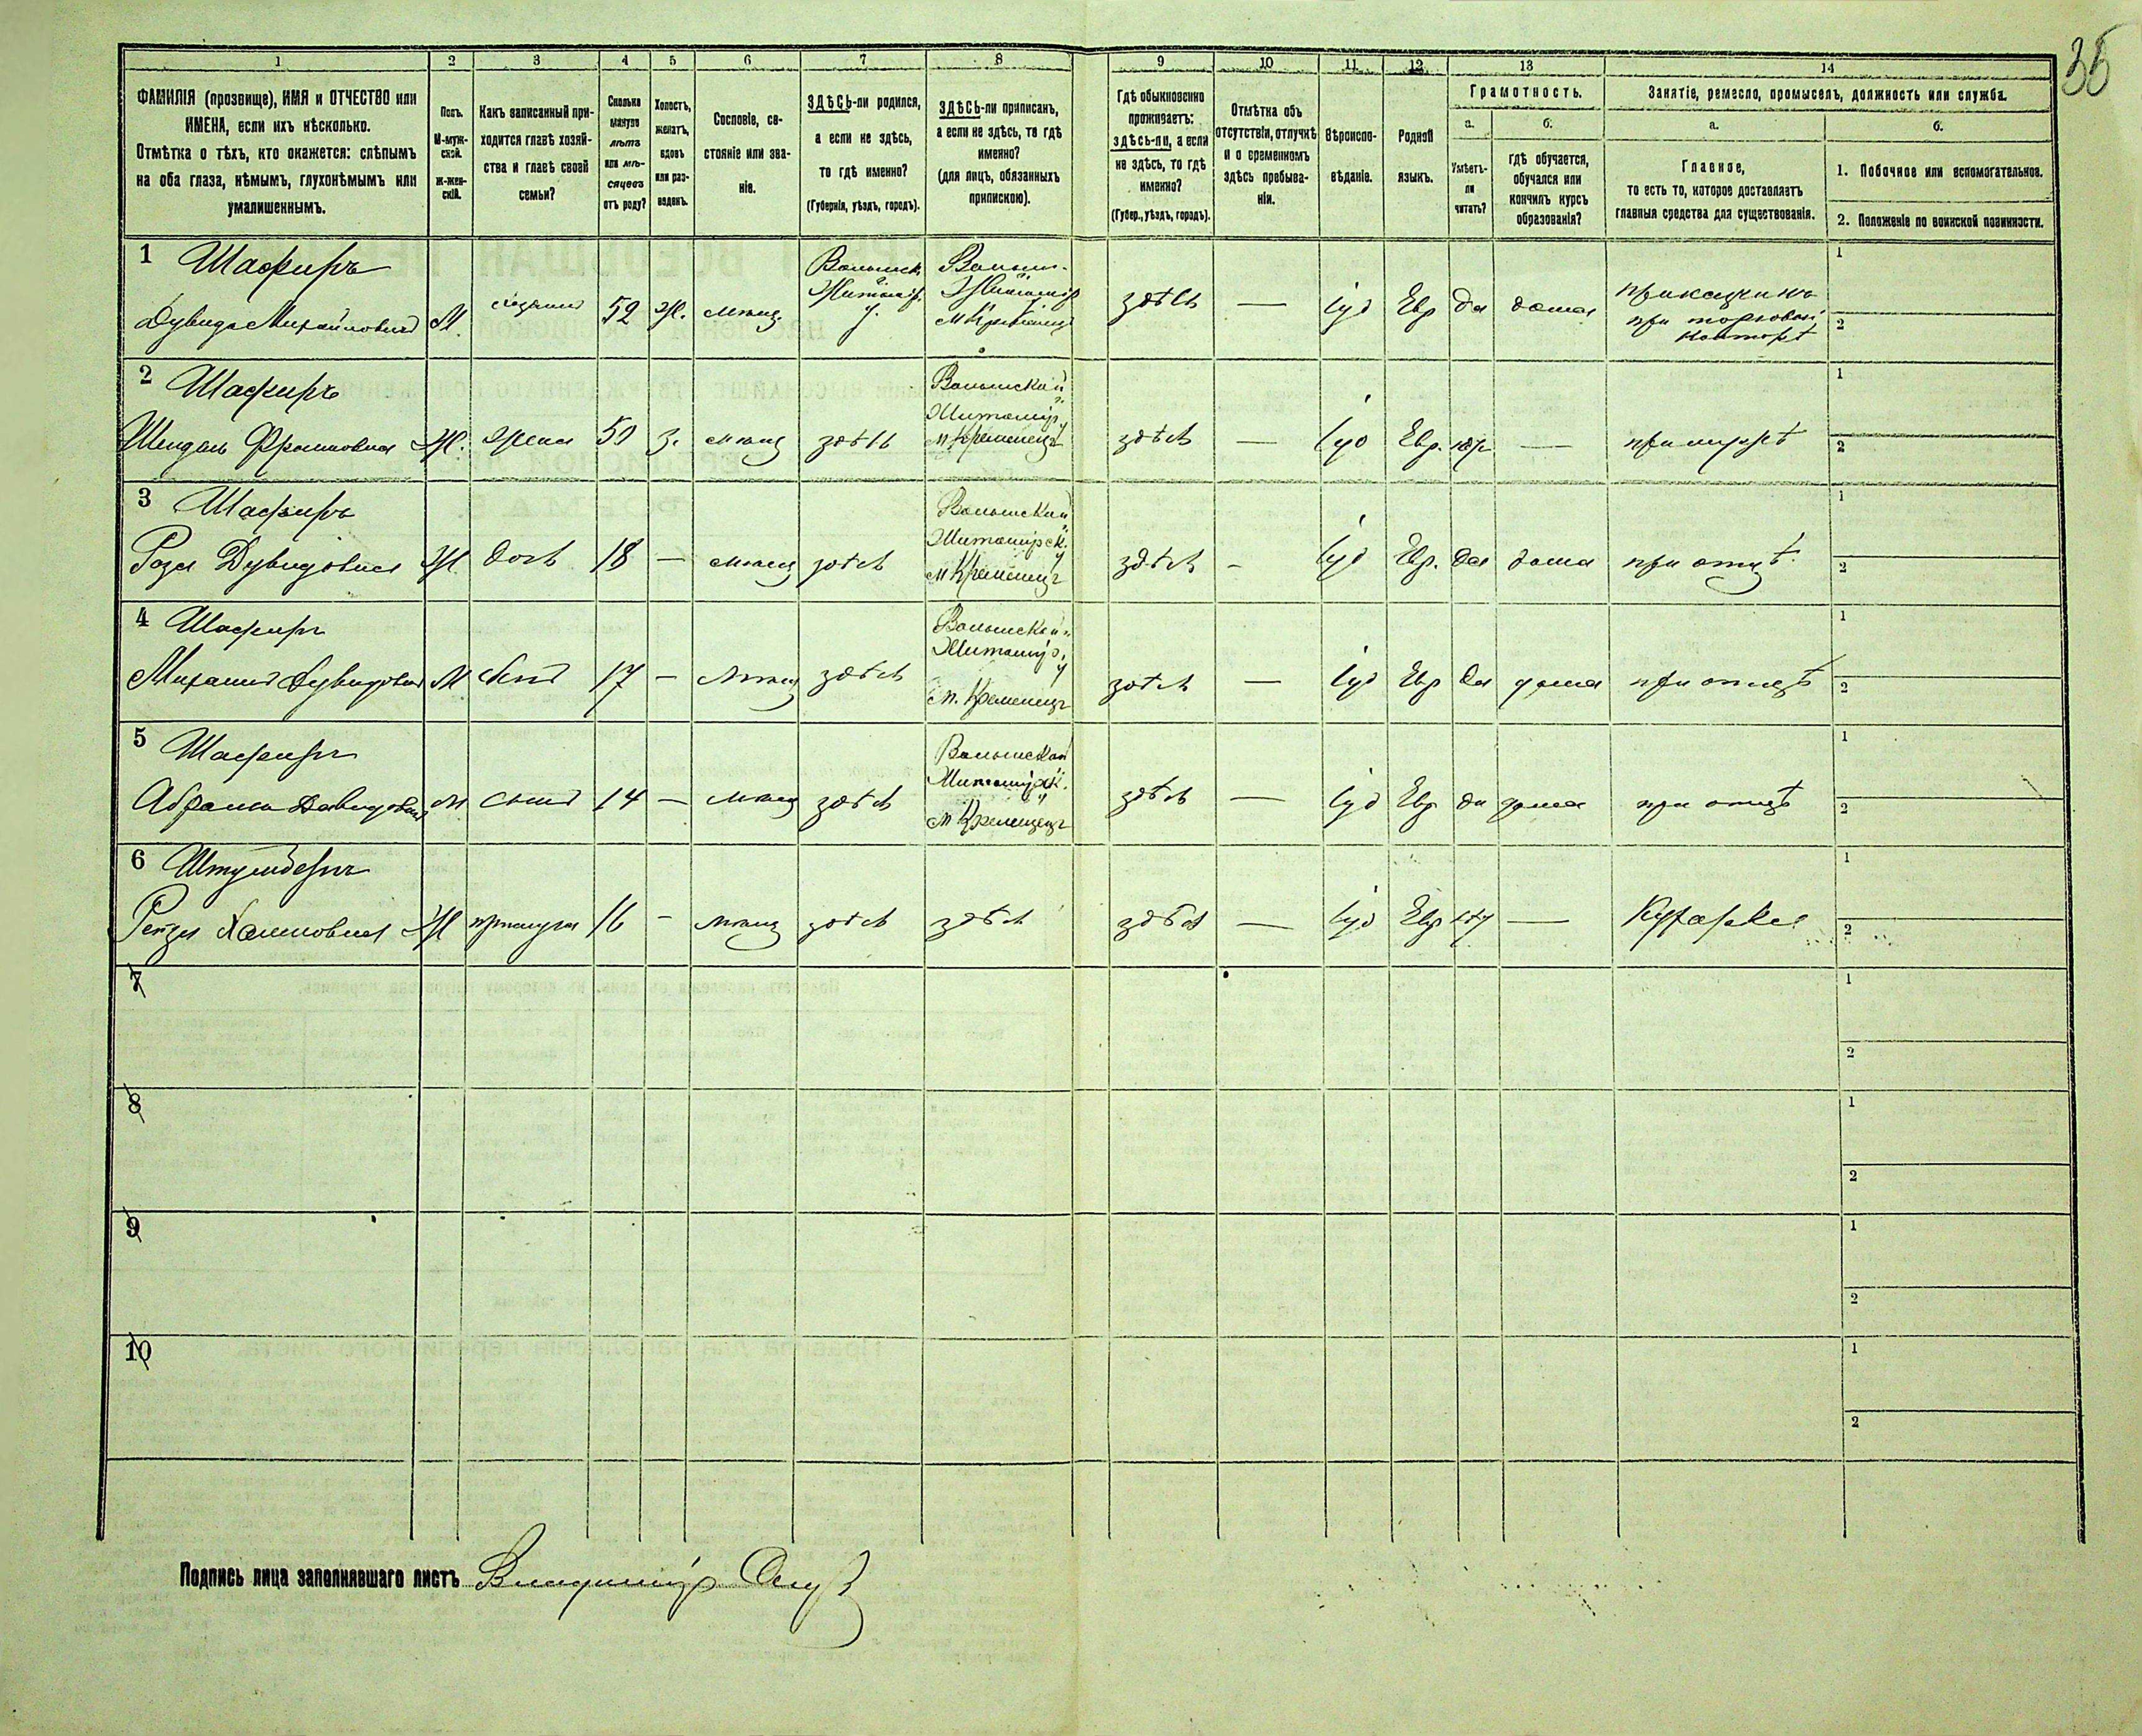 35
1 2 3 4 5 6 7 8 9 10 11 12 13 14
ФАМИЛІЯ (прозвище), ИМЯ и ОТЧЕСТВО или
ИМЕНА, если ихъ нѣсколько.
Отмѣтка о тѣхъ, кто окажется: слѣпымъ
на оба глаза, нѣмымъ, глухонѣмымъ или
умалишеннымъ.
Полъ.
М-муж-
ской.
ж-жен-
скій.
Какъ записанный при-
ходится главѣ хозяй-
ства и главѣ своей
семьи?
Сколько
минуло
лѣтъ
или мѣ-
сяцевъ
отъ роду?
Холостъ,
женатъ,
вдовъ
или раз-
веденъ.
Сословіе, со-
стояніе или зва-
ніе.
ЗДѢСЬ-ли родился,
а если не здѣсь,
то гдѣ именно?
(Губернія, уѣздъ, городъ).
ЗДѢСЬ-ли приписанъ,
а если не здѣсь, то гдѣ
именно?
(для лицъ, обязанныхъ
припискою).
Гдѣ обыкновенно
проживаетъ:
здѣсь-ли, а если
не здѣсь, то гдѣ
именно?
(Губер., уѣздъ, городъ).
Отмѣтка объ
отсутствіи, отлучкѣ
и о временномъ
здѣсь пребыва-
ніи.
Вѣроиспо-
вѣданіе.
Родной
языкъ.
Грамотность.
а.
Умѣетъ-
ли
читать?
б.
гдѣ обучается,
обучался или
кончилъ курсъ
образованія?
Занятіе, ремесло, промыселъ, должность или служба.
а.
Главное,
то есть то, которое доставляетъ
главныя средства для существованія.
б.
1. Побочное или вспомогательное.
2. Положеніе по воинской повинности.
1 Шафиръ
Дувидъ Михайловичъ М. хозяинъ 52 ж. мѣщ.
Волынск.
Житомір.
у.
Волын.
Житомір
м Кременецъ
здѣсь — Іуд Евр да дома
прикащикъ
при торговой
конторѣ
1
2
2 Шафиръ
Шендль Фроимовна Ж. жена 50 з. мѣщ здѣсь
Волынской
Житомір
у
м Кременецъ
здѣсь — Іуд Евр. нѣт — при мужѣ
1
2
3 Шафиръ
Роза Дувидовна Ж дочь 18 — мѣщ здѣсь
Волынской
Житомірск.
у
м Кременецъ
здѣсь - Іуд Евр. да дома при отцѣ
1
2
4 Шафиръ
Михаилъ Дувидович М сынъ 17 — мѣщ здѣсь
Волынской
Житомір.
у
м. Кременецъ
здѣсь — Іуд Евр да дома при отцѣ
1
2
5 Шафиръ
Абрамъ Давидович м сынъ 14 — мѣщ здѣсь
Волынской
Житомірск.
у
м Кременецъ
здѣсь — Іуд Евр да дома при отцѣ
1
2
6
Хаимовна Ж прислуга 16 — мѣщ здѣсь здѣсь здѣсь — Іуд Евр нѣт — Кухарка
1
2
7
1
2
8
1
2
9
1
2
10
1
2
Подпись лица заполнявшаго листъ Владиміръ